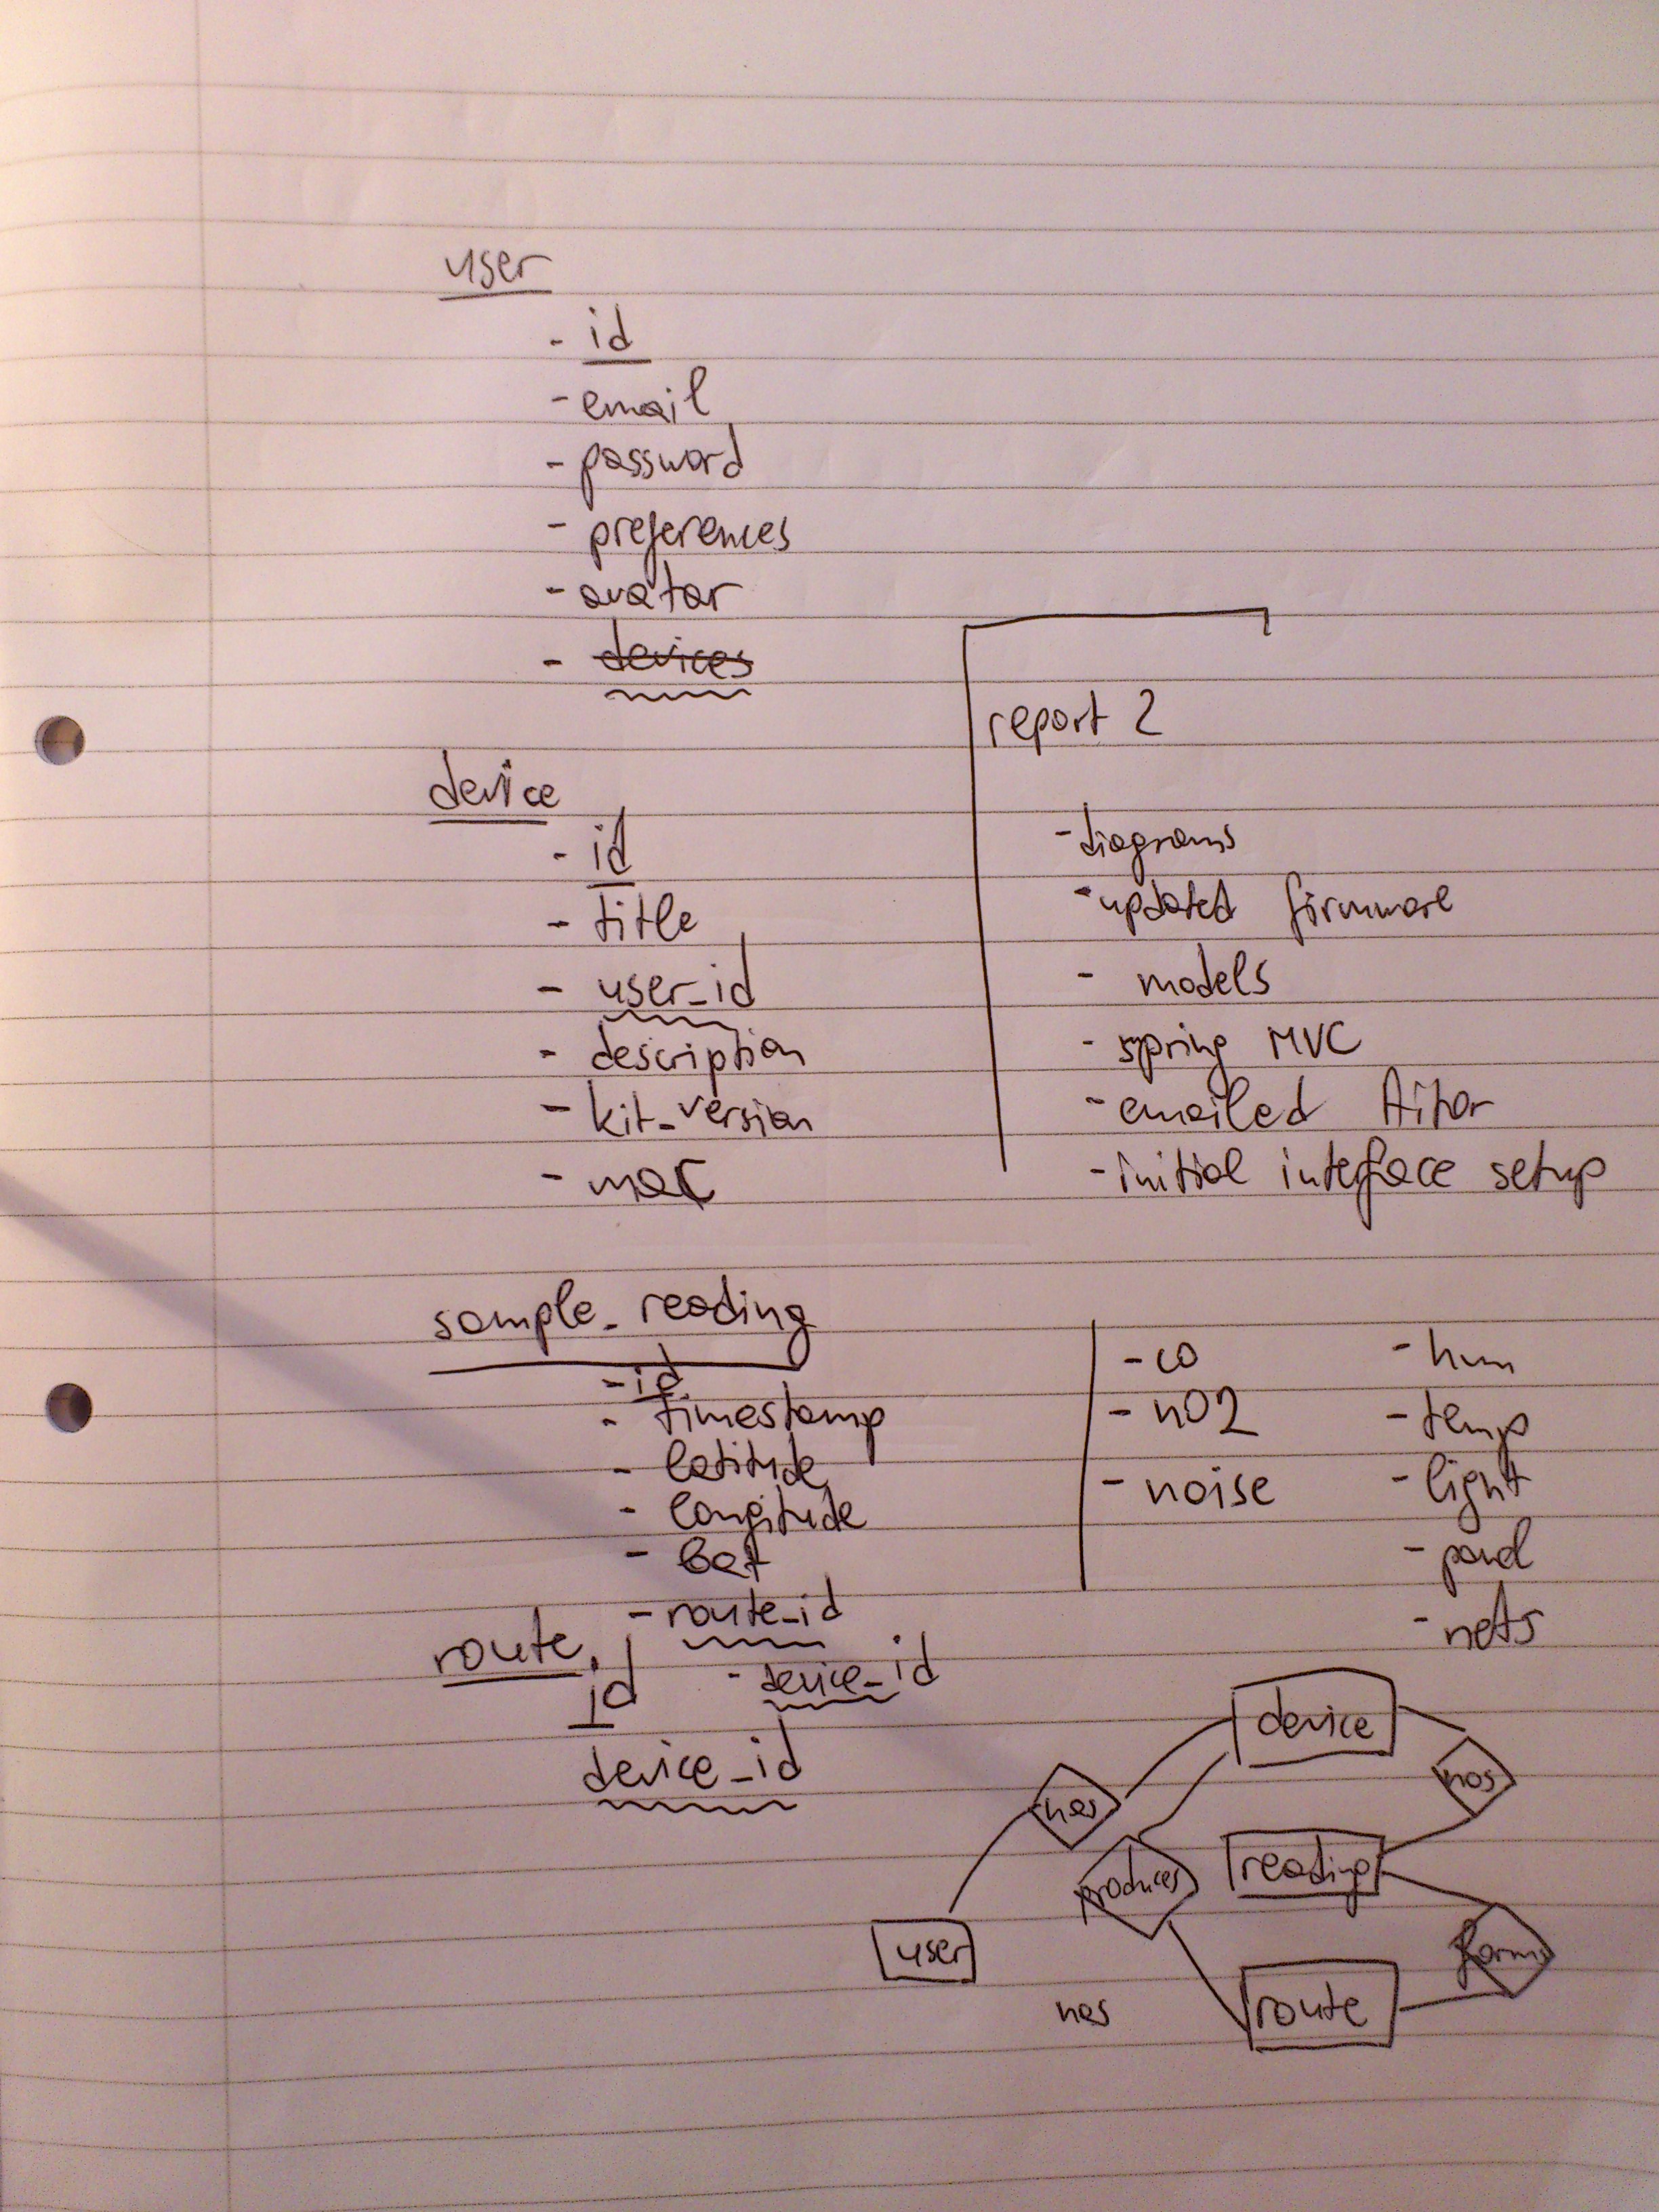 user
- id
- email
- password
- preferences
- avatar
- devices
device
- id
- title
- user_id
- description
- kit_version
- mac
report 2
- diagrams
- updated firmware
- models
- spring MVC
- emailed Aitor
- initial interface setup
sample_reading
- id
- timestamp
- latitude
- longitude
- bat
- route_id
- device_id
- co
- nO2
- noise
- hum
- temp
- light
- panel
- nets
route
id
device_id
device
has
has
produces
reading
user
forms
has
route